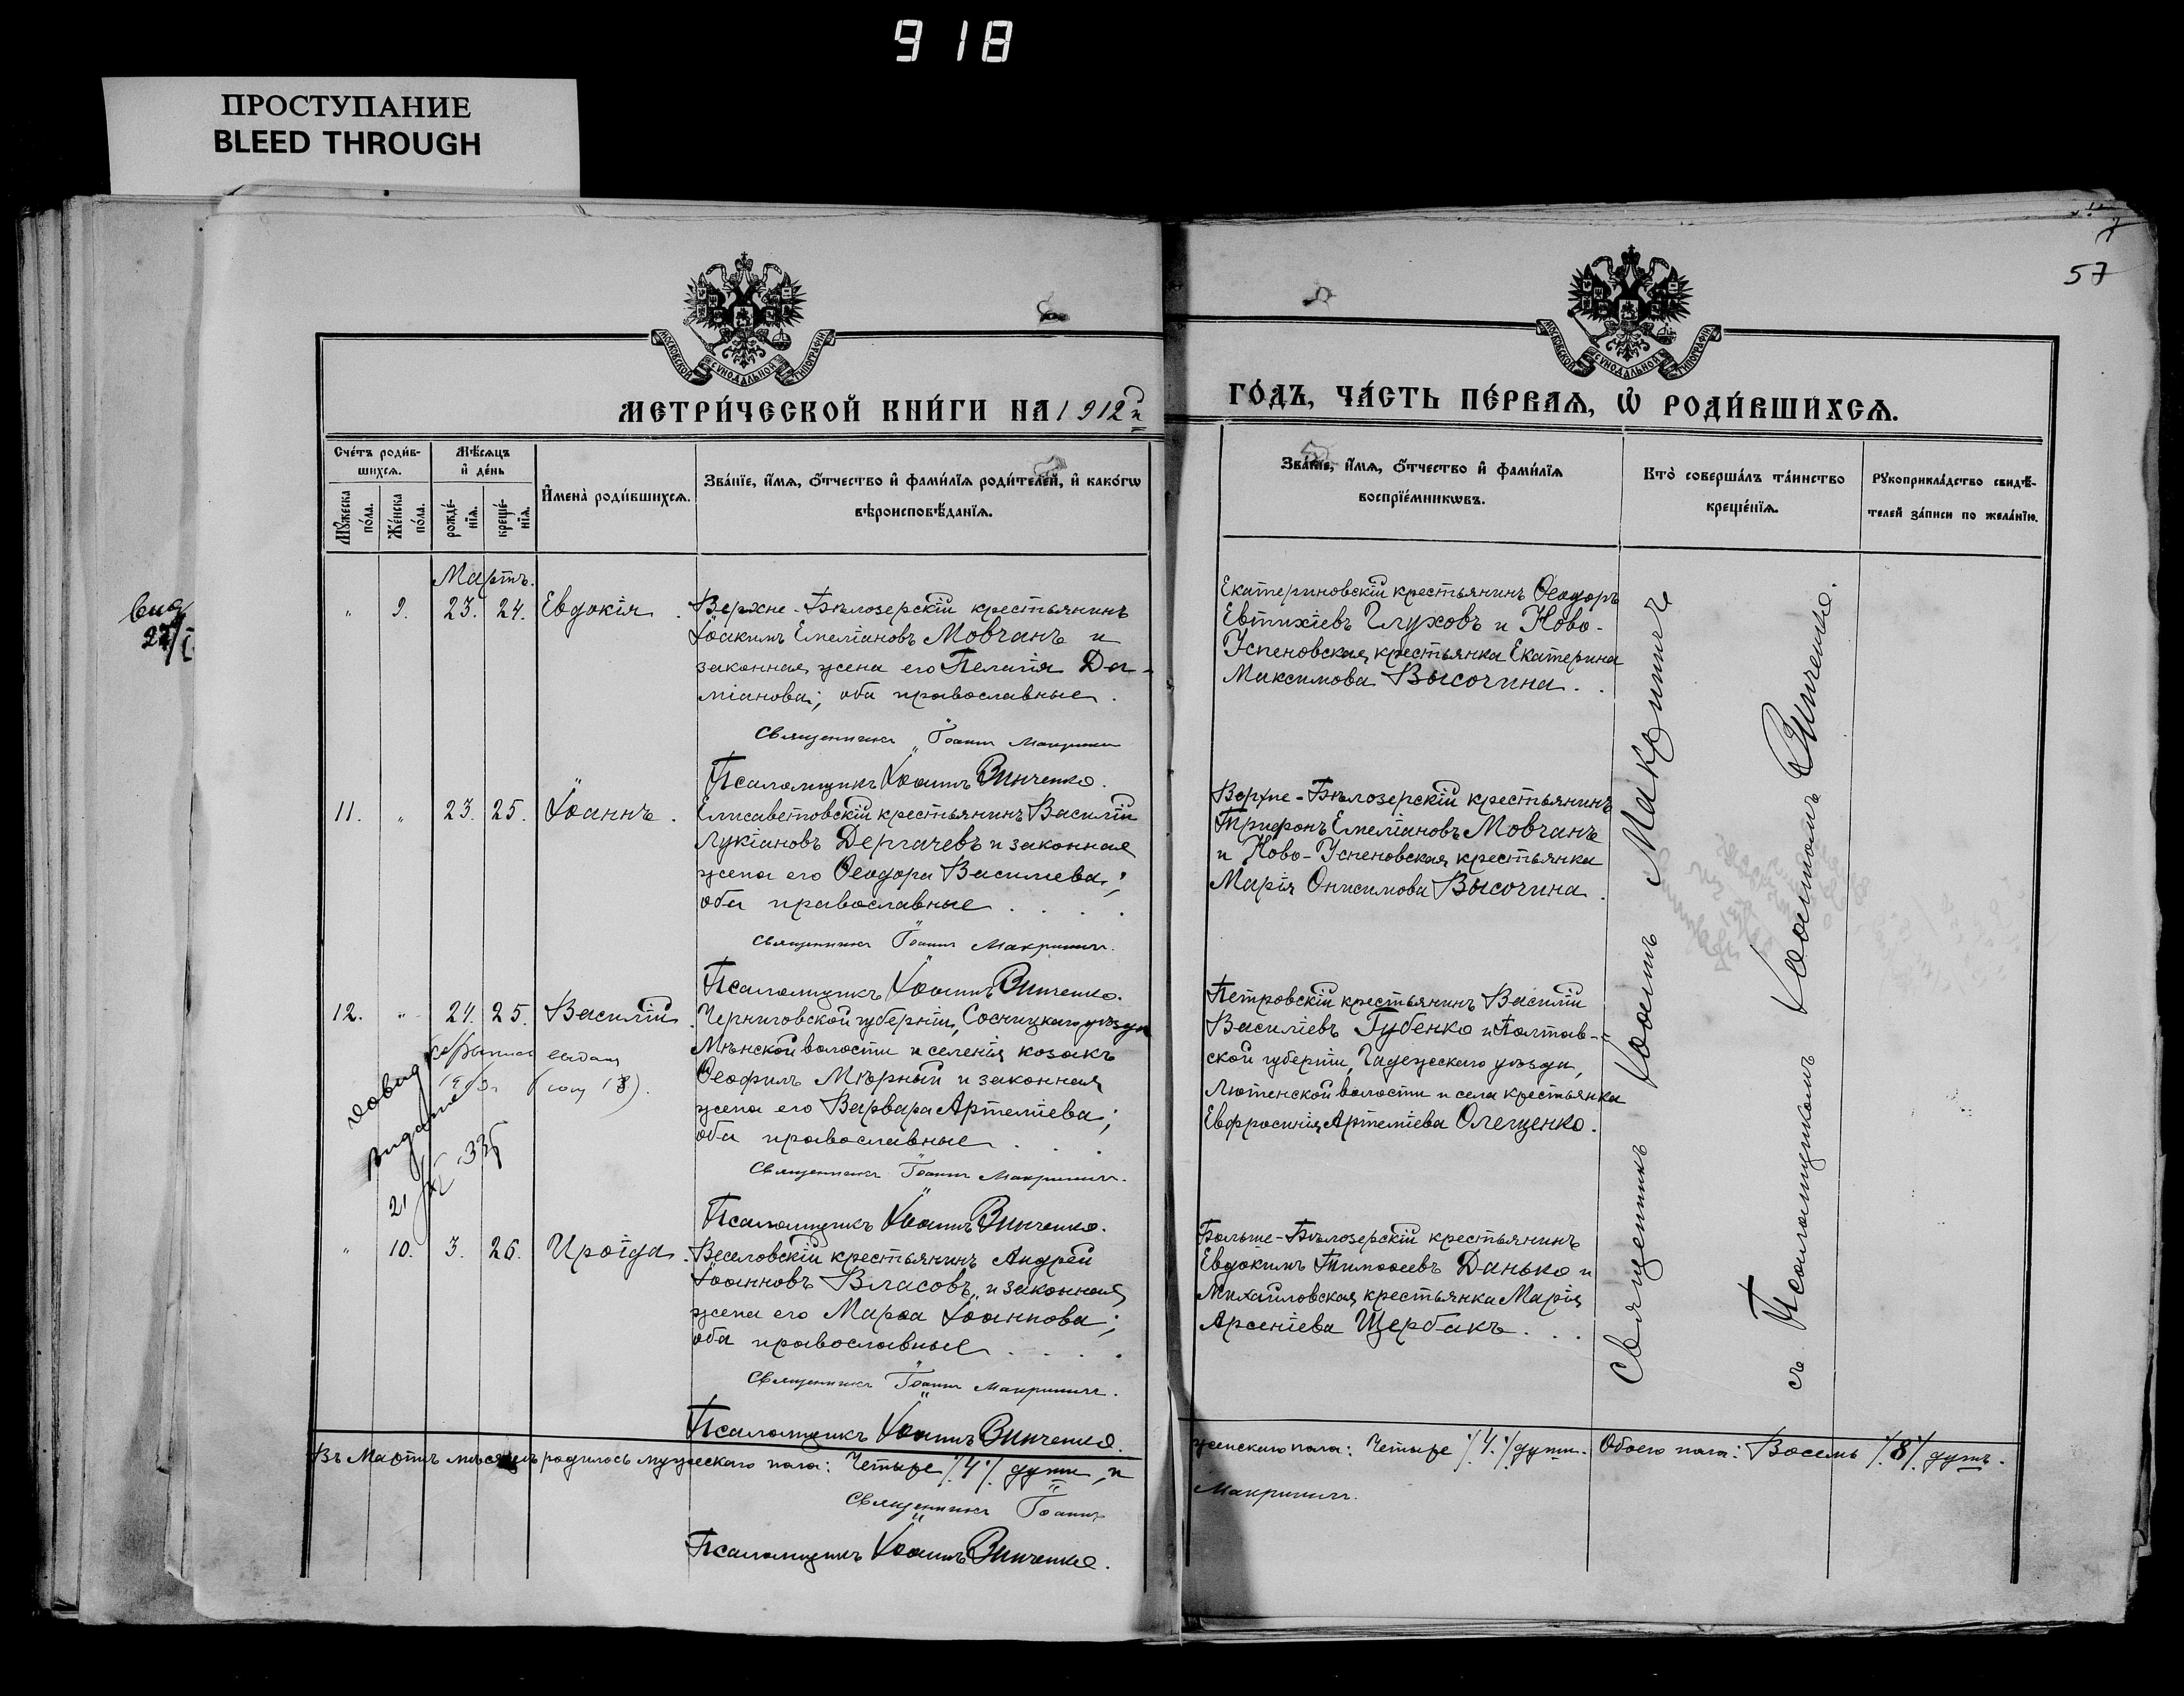 918
ПРОСТУПАНИЕ
BLEED THROUGH
57
МОСКОВСКОЙ СѴНОДАЛЬНОЙ ТИПОГРАФІИ
МОСКОВСКОЙ СѴНОДАЛЬНОЙ ТИПОГРАФІИ
МЕТРИ́ЧЕСКОЙ КНИ́ГИ НА 1912й
ГО́ДЪ, ЧА́СТЬ ПЕ́РВАѦ, Ѡ РОДИ́ВШИХСѦ.
Сче́тъ роди́в-
шихсѧ.
Мꙋ́жеска по́ла.
Же́нска по́ла.
Мѣ́сѧцъ
и҆ де́нь
рожде́-
нїѧ.
креще́-
нїѧ.
И҆мена̀ роди́вшихсѧ.
Зва́нїе, и҆́мѧ, ѻ҆́тчество и҆ фами́лїѧ роди́телей, и҆ како́гѡ
вѣроисповѣ́данїѧ.
Зва́нїе, и҆́мѧ, ѻ҆́тчество и҆ фами́лїѧ
воспрїе́мникѡвъ.
Кто̀ соверша́лъ та́инство
креще́нїѧ.
Рꙋкоприкла́дство свидѣ́-
телей за́писи по жела́нїю.
Мартъ.
" 9. 23. 24. Евдокія.
Верхне-Бѣлозерскій крестьянинъ
Іоакимъ Емеліановъ Мовчанъ и
законная жена его Пелагія Да-
міанова; оба православные.
Священникъ Іоаннъ Макриничъ
Псаломщикъ Іоаннъ Винченко.
Екатериновскій крестьянинъ Ѳеодоръ
Евтихіевъ Глуховъ и Ново-
Успеновская крестьянка Екатерина
Максимова Высочина..
11. " 23. 25. Іоаннъ.
Елисаветовскій крестьянинъ Василій
Лукіановъ Дергачевъ и законная
жена его Ѳеодора Василіева;
оба православные....
Священникъ Іоаннъ Макриничъ.
Псаломщикъ Іоаннъ Винченко.
Верхне-Бѣлозерскій крестьянинъ
Трифонъ Емеліановъ Мовчанъ
и Ново-Успеновская крестьянка
Марія Онисимова Высочина.
12. " 24. 25. Василій.
Черниговской губерніи, Сосницкаго уѣзда
Мѣнской волости и селенія козакъ
Ѳеофилъ Мѣрный и законная
жена его Варвара Артеміева;
оба православные...
Священникъ Іоаннъ Макриничъ.
Псаломщикъ Іоаннъ Винченко.
Петровскій крестьянинъ Василій
Василіевъ Губенко и Полтав-
ской губерніи, Гадяческаго уѣзда,
Лютенской волости и села крестьянка
Евфросинія Артеміева Олещенко.
" 10. 3. 26. Ироіда.
Веселовскій крестьянинъ Андрей
Іоанновъ Власовъ и законная
жена его Марѳа Іоаннова;
оба православные....
Священникъ Іоаннъ Макриничъ.
Псаломщикъ Іоаннъ Винченко.
Больше-Бѣлозерскій крестьянинъ
Евдокимъ Тимоѳеевъ Данько и
Михайловская крестьянка Марія
Арсеніева Щербакъ...
Священникъ Іоаннъ Макриничъ
съ Псаломщикомъ Іоанномъ Винченко.
Въ Мартѣ мѣсяцѣ родилось мужескаго пола: Четыре /4/ души, и
женскаго пола: Четыре /4/ души. Обоего пола: Восемь /8/ душъ.
Священникъ Іоаннъ
Макриничъ.
Псаломщикъ Іоаннъ Винченко.